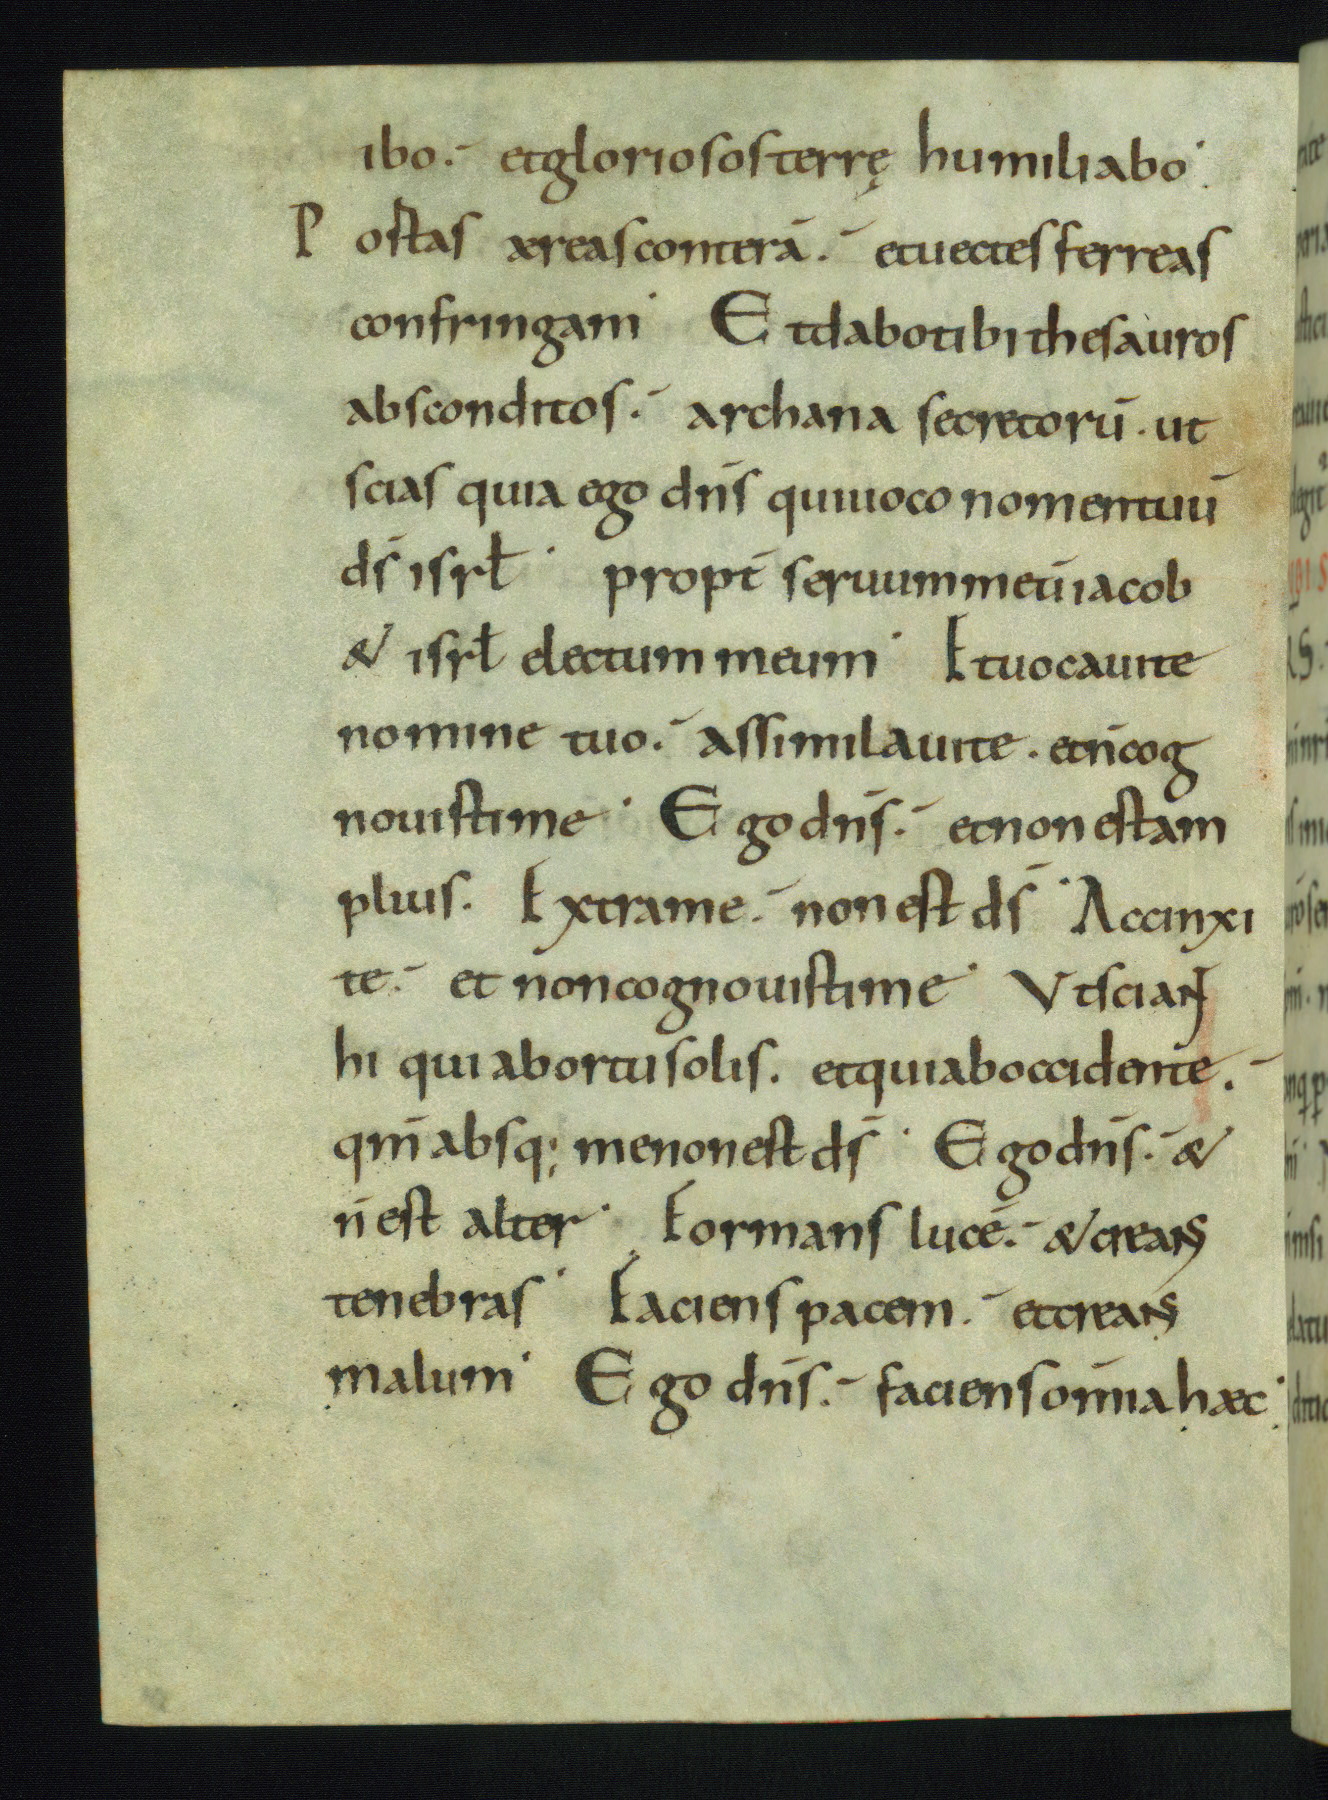 ibo. et gloriosos terrę humiliabo.
Portas æreas conterā. et uectes ferreas
confringam. Et dabo tibi thesauros
absconditos. archana secretorū. ut
scias quia ego dn̄s qui uoco nomen tuū
ds̄ isrł. propt̄ seruum meū iacob
& isrł electum meum. Et uocaui te
nomine tuo. assimilaui te. et n̄ cog
nouisti me. Ego dn̄s. et non est am
plius. Extra me. non est ds̄. Accinxi
te. et non cognouisti me. Vt sciant
hi qui ab ortu solis. et qui ab occidente.
qm̄ absq; me non est ds̄. Ego dn̄s. &
n̄ est alter. Formans lucē. & creans
tenebras. Faciens pacem. et creans
malum. Ego dn̄s. faciens om̄ia hæc.